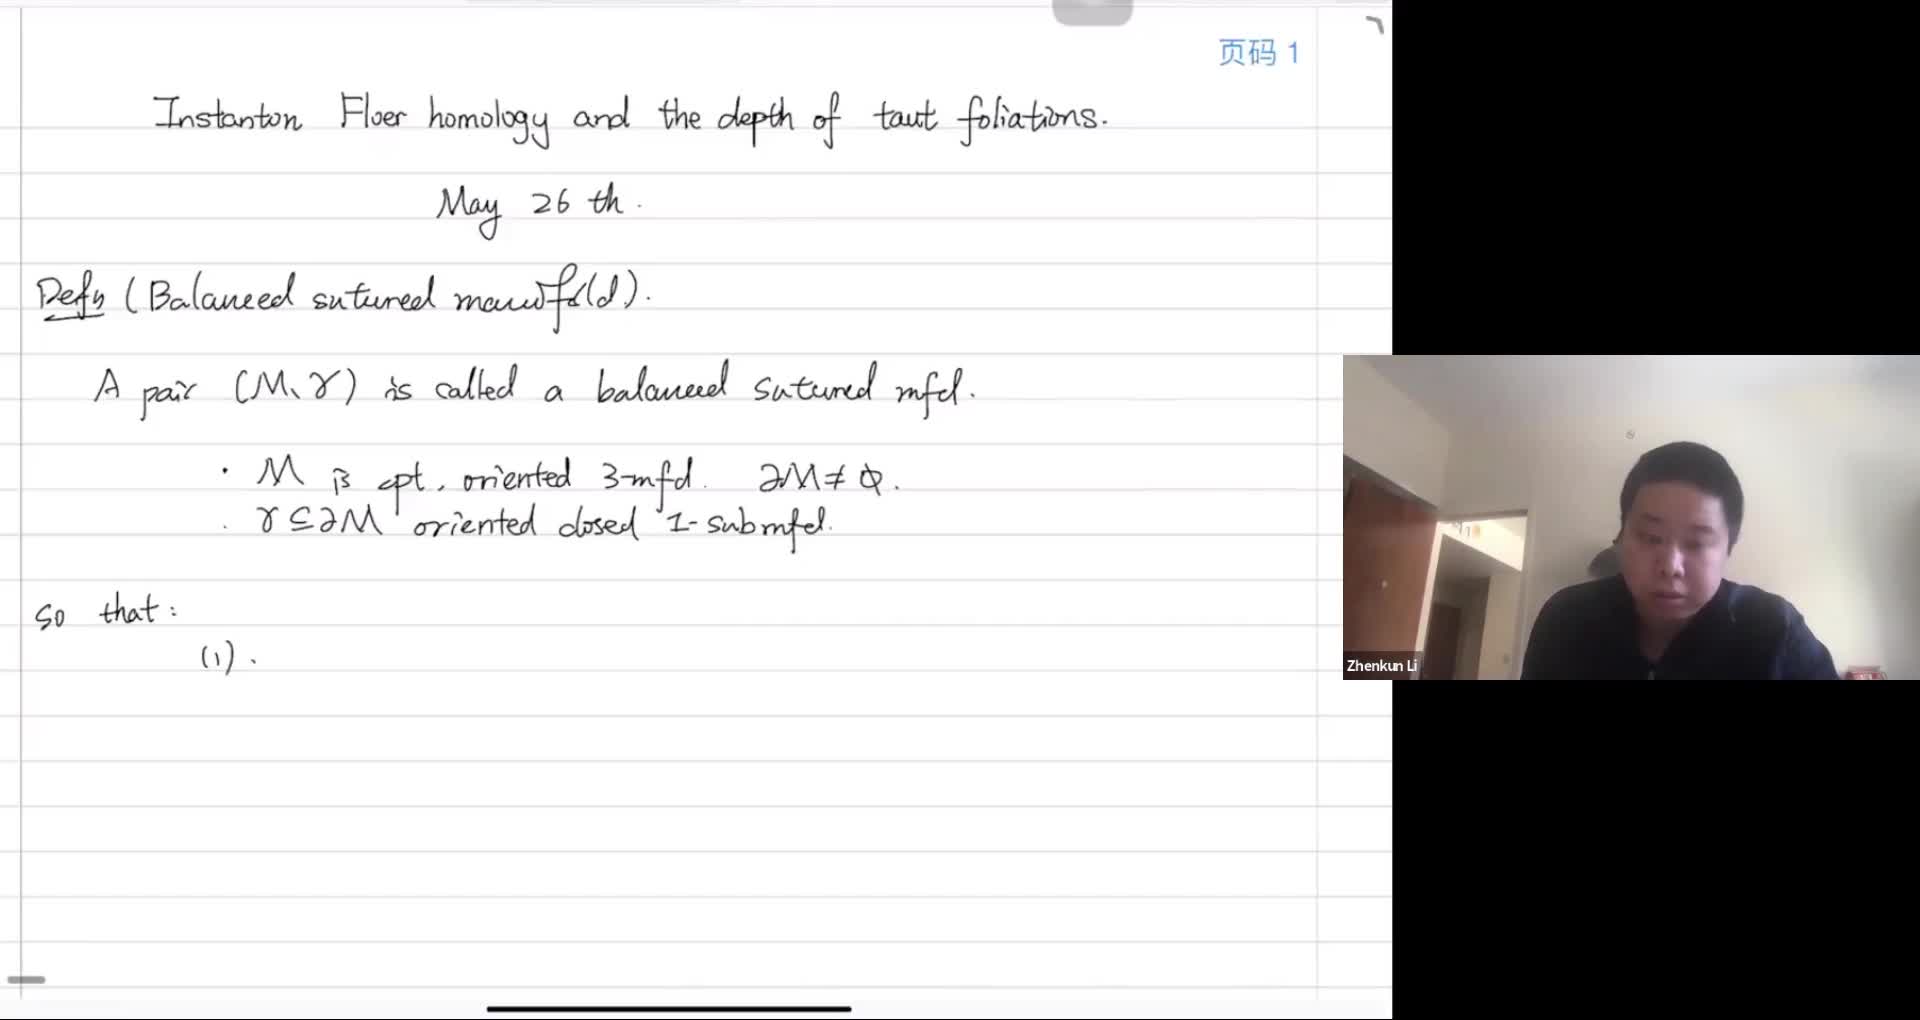 页码 1
Instanton Floer homology and the depth of taut foliations.
May 26 th.
Defn (Balanced sutured manifold).
A pair (M, γ) is called a balanced sutured mfd.
· M is cpt, oriented 3-mfd. ∂M ≠ ∅.
· γ ⊆ ∂M oriented closed 1-submfd.
so that:
(1).
Zhenkun Li